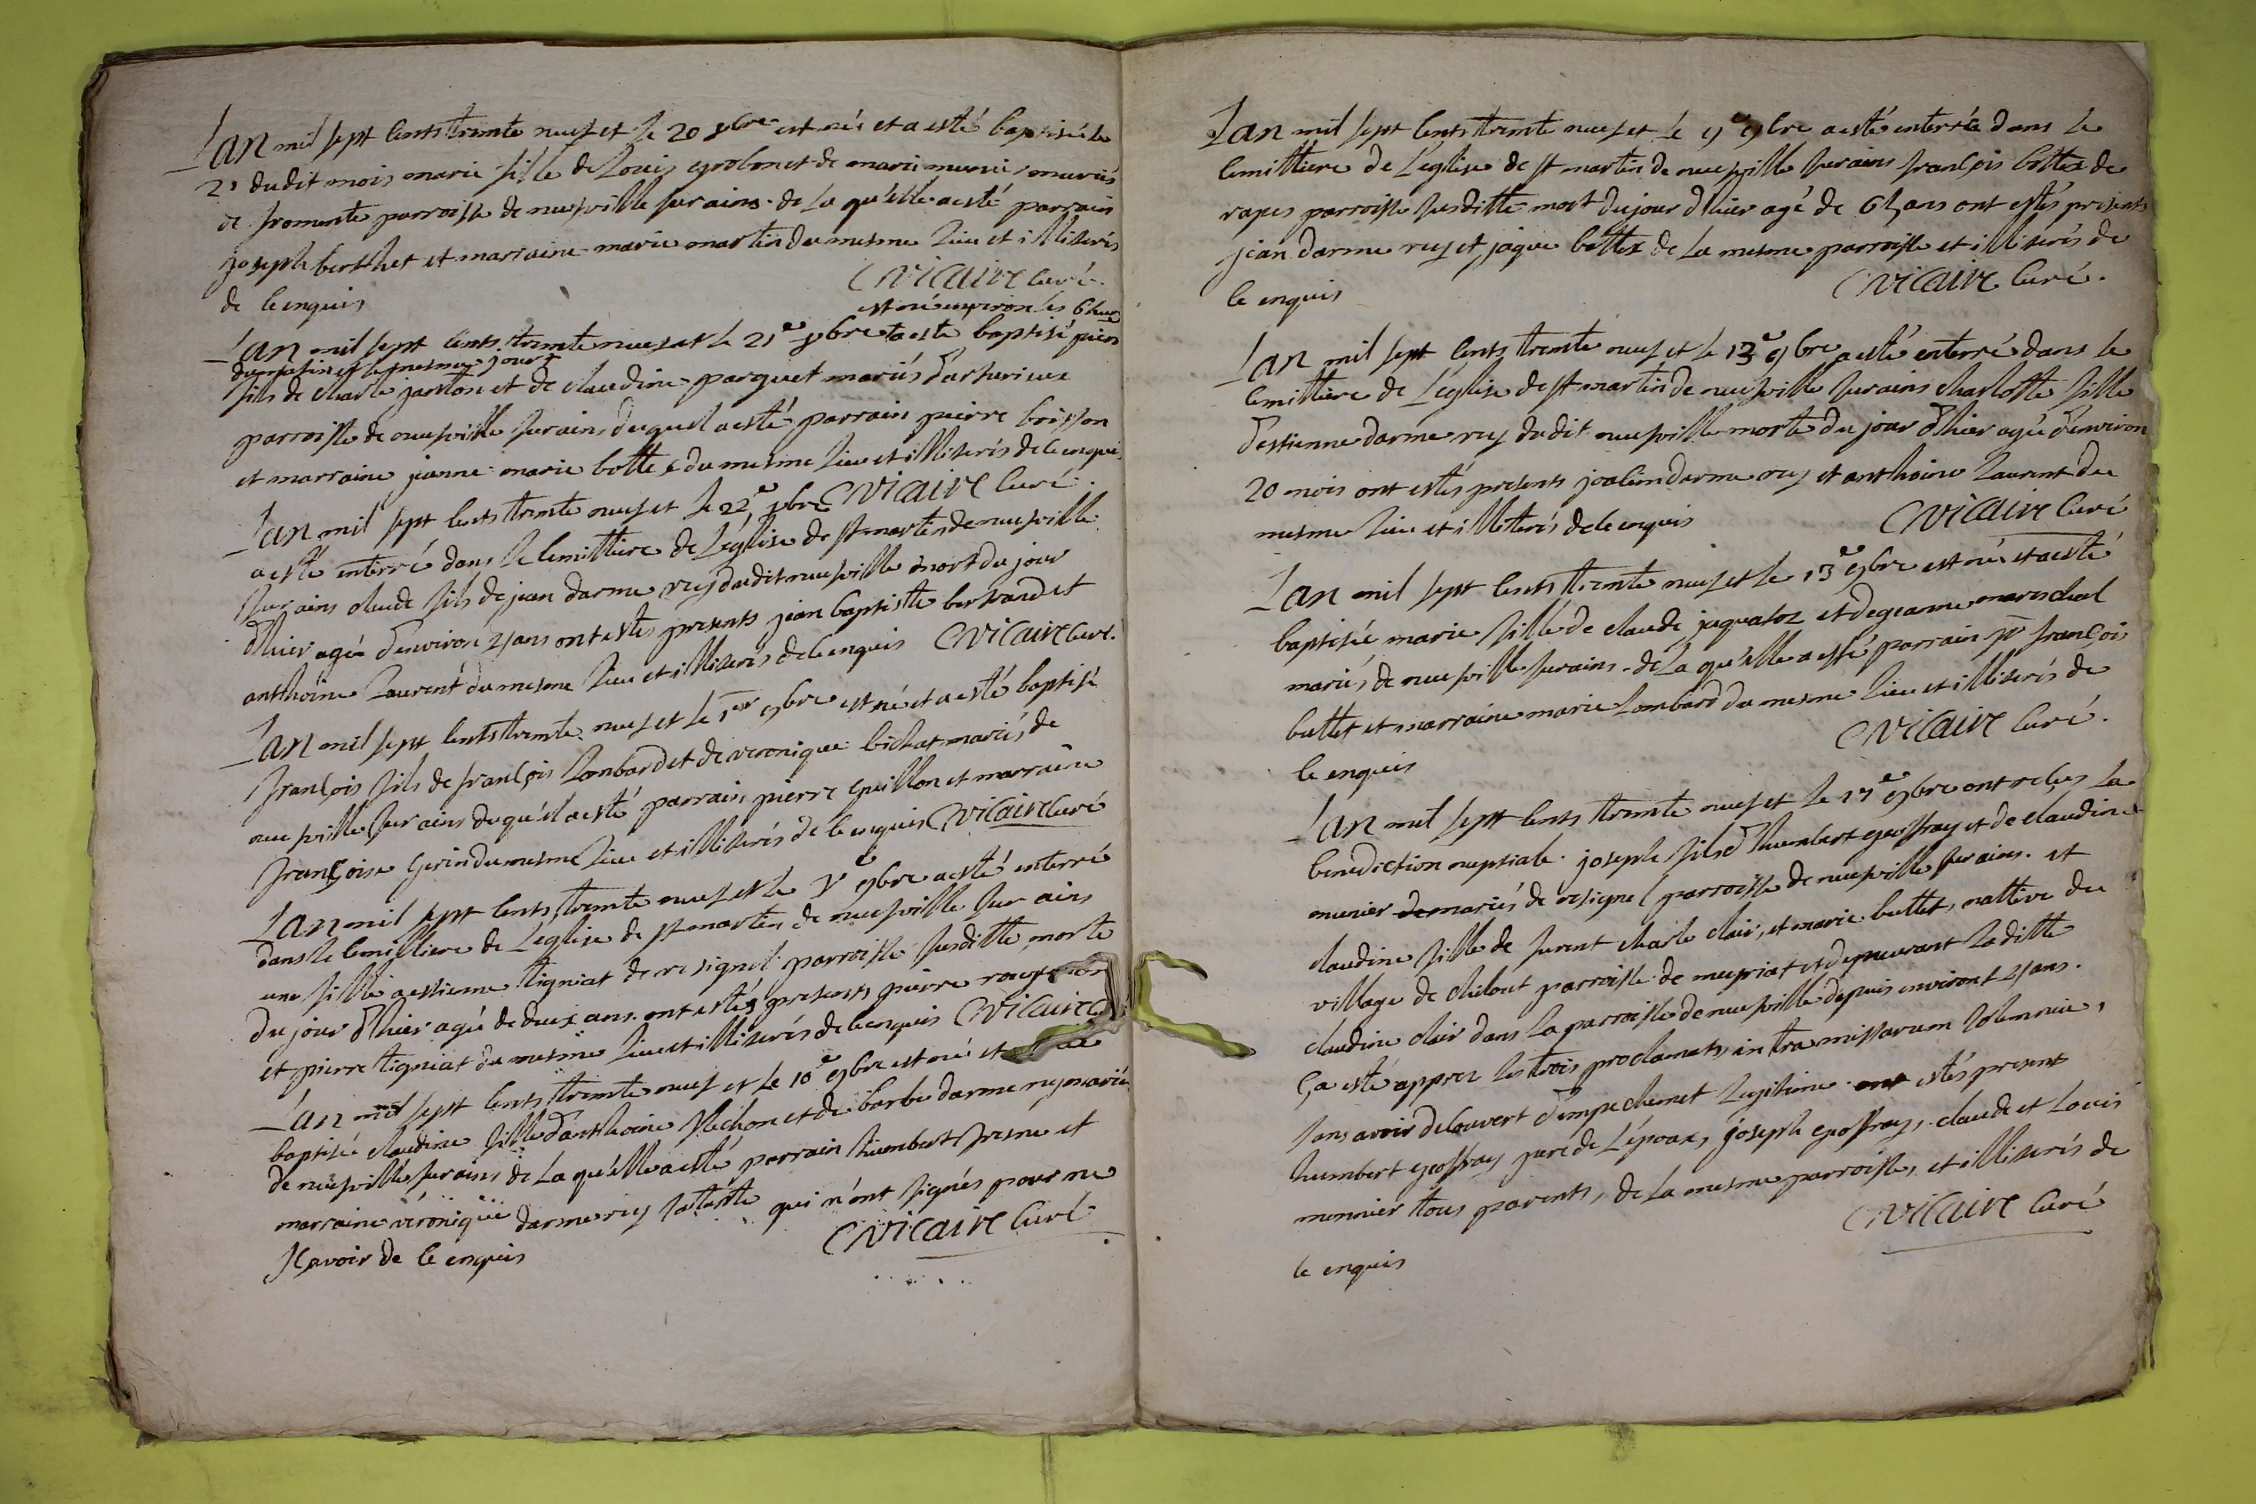 Lan mil sept cents trente neuf et le 20 8bre est née et a esté baptisée le
21 dudit mois marie fille de Louis et de marie mariés
de fromente parroisse de neufville sur ains de la qu'elle a esté parrain
joseph berthet et marraine marie martin du mesme lieu et illiterés
de ce enquis CVicaire Curé.
est né environ les 6 heures
Lan mil sept cents trente neuf et le 21e 8bre a esté baptisé pierre
du matin et le mesme jour
fils de Charle janton et de claudine parquet mariés
parroisse de neufville sur ains duquel a esté parrain pierre boisson
et marraine jeanne marie bottex du mesme lieu et illiterés de ce enquis
Lan mil sept cents trente neuf et le 22e 8bre CVicaire Curé.
a esté enterré dans le cemittiere de L'église de st martin de neufville
sur ains claude fils de jean darmerey dudit neufville mort du jour
d'hier agé d'environ ans ont estés presents jean baptiste bertrand et
anthoine Laurent du mesme lieu et illiterés de ce enquis CVicaire Curé.
Lan mil sept cents trente neuf et le 1er 9bre est né et a esté baptisé
françois fils de françois Lombard et de veronique bichat mariés de
neufville sur ains du qu'el a esté parrain pierre guillon et marraine
françoise gerin du mesme lieu et illiterés de ce enquis CVicaire Curé
Lan mil sept cents trente neuf et le 9bre a esté enterré
dans le cemittiere de L'église de st martin de neufville sur ains
une fille a estienne tigniat de resignel parroisse susditte morte
du jour d'hier agée de deux ans ont estés presents pierre
et pierre tigniat du mesme lieu et illiterés de ce enquis CVicaire
Lan mil sept cents trente neuf et le 10e 9bre est née et
baptisée claudine fille d'anthoine et de barbe darmerey mariés
de neufville sur ains de la qu'elle a esté parrain humbert fresne et
marraine véronique darmerey qui n'ont signés pour ne
sçavoir de ce enquis CVicaire Curé
Lan mil sept cents trente neuf et le 9e 9bre a esté enterré dans le
cemittiere de L'eglise de st martin de neufville sur ains françois bottex de
rapes parroisse susditte mort du jour d'hier agé de ans ont estés presents
jean darmerey et jaque bottex de la mesme parroisse et illiterés de
ce enquis CVicaire Curé.
Lan mil sept cents trente neuf et le 13e 9bre a esté enterré dans le
cemittiere de L'église de st martin de neufville sur ains charlotte fille
d'estienne darmerey dudit neufville morte du jour d'hier agée d'environ
20 mois ont estés presents darmerey et anthoine Laurent du
mesme lieu et illiterés de ce enquis CVicaire Curé
Lan mil sept cents trente neuf et le 13e 9bre est née et a esté
baptisée marie fille de claude et de jeanne mareschal
mariés de neufville sur ains de la qu'elle a esté parrain françois
buttet et marraine marie Lombard du mesme lieu et illiterés de
ce enquis CVicaire Curé.
Lan mil sept cents trente neuf et le 17e 9bre ont reçus la
benediction nuptiale joseph fils d'humbert geoffray et de claudine
munier mariés de resignel parroisse de neufville sur ains et
claudine fille de furent charle clair, et marie buttet, nattive du
village de chilout parroisse de meyriat et demeurant laditte
claudine clair dans la parroisse de neufville depuis environt ans.
ça esté apprez les trois proclamats, intra missarum solemnia,
sans avoir decouvert d'empechemet legitime ont estés present
humbert geoffray pere de L'époux, joseph geoffray, claude et Louis
monnier tous parents, de la mesme parroisse, et illiterés de
ce enquis CVicaire Curé